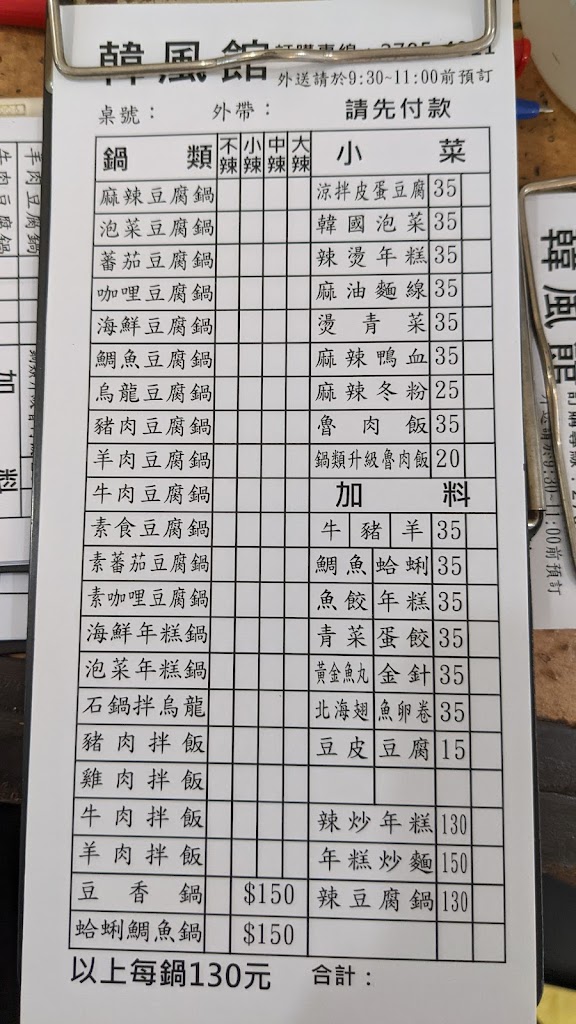 韓風館
外送請於9:30~11:00前預訂
桌號： 外帶： 請先付款
鍋類 不辣 小辣 中辣 大辣 小菜
麻辣豆腐鍋 涼拌皮蛋豆腐 35
泡菜豆腐鍋 韓國泡菜 35
蕃茄豆腐鍋 辣燙年糕 35
咖哩豆腐鍋 麻油麵線 35
海鮮豆腐鍋 燙青菜 35
鯛魚豆腐鍋 麻辣鴨血 35
烏龍豆腐鍋 麻辣冬粉 25
豬肉豆腐鍋 魯肉飯 35
羊肉豆腐鍋 鍋類升級魯肉飯 20
牛肉豆腐鍋 加料
素食豆腐鍋 牛 豬 羊 35
素蕃茄豆腐鍋 鯛魚 蛤蜊 35
素咖哩豆腐鍋 魚餃 年糕 35
海鮮年糕鍋 青菜 蛋餃 35
泡菜年糕鍋 黃金魚丸 金針 35
石鍋拌烏龍 北海翅 魚卵卷 35
豬肉拌飯 豆皮 豆腐 15
雞肉拌飯
牛肉拌飯 辣炒年糕 130
羊肉拌飯 年糕炒麵 150
豆香鍋 $150 辣豆腐鍋 130
蛤蜊鯛魚鍋 $150
以上每鍋130元 合計：